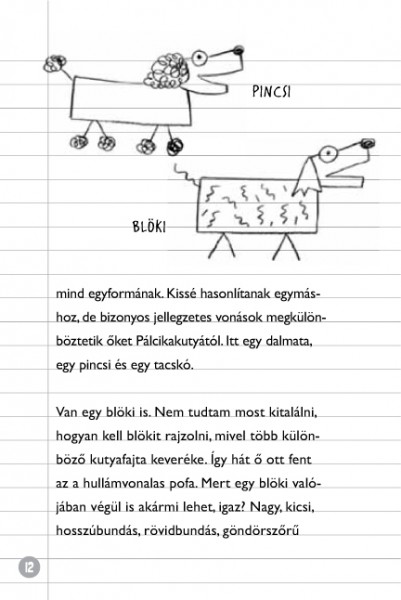 PINCSI
BLÖKI
mind egyformának. Kissé hasonlítanak egymás-
hoz, de bizonyos jellegzetes vonások megkülön-
böztetik őket Pálcikakutyától. Itt egy dalmata,
egy pincsi és egy tacskó.
Van egy blöki is. Nem tudtam most kitalálni,
hogyan kell blökit rajzolni, mivel több külön-
böző kutyafajta keveréke. Így hát ő ott fent
az a hullámvonalas pofa. Mert egy blöki való-
jában végül is akármi lehet, igaz? Nagy, kicsi,
hosszúbundás, rövidbundás, göndörszőrű
12